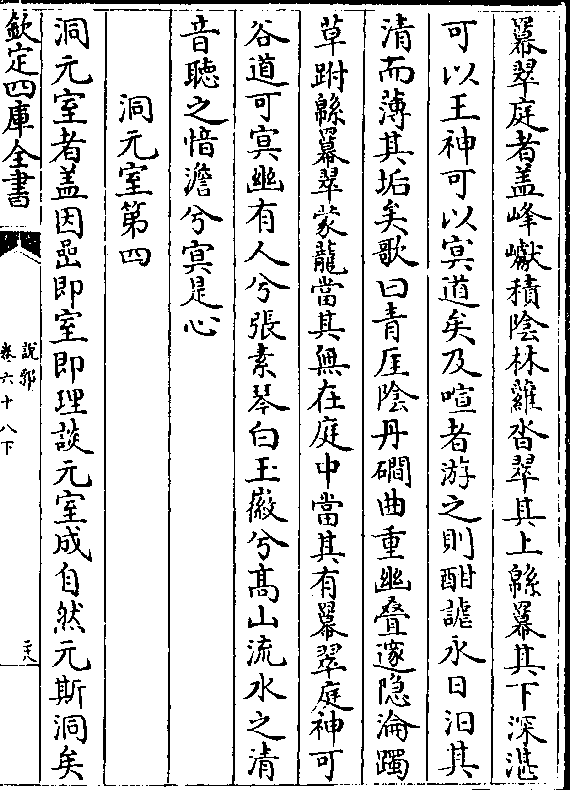 羃翠庭者盖峰巘積陰林蘿沓翠其上緜羃其下深湛
可以王神可以冥道矣及喧者游之則酣謔永日汨其
清而薄其垢矣歌曰青厓陰丹磵曲重幽疊邃隐淪躅
草附緜羃翠蒙蘢當其無在庭中當其有羃翠庭神可
谷道可冥幽有人兮張素琴白玉徽兮髙山流水之清
音聽之愔澹兮冥是心
洞元室第四
洞元室者盖因嵒即室即理談元室成自然元斯洞矣
欽定四庫全書
説郛
卷六十八下